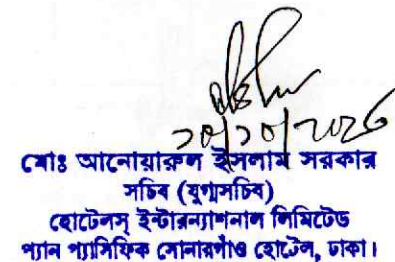 মোঃ আনোয়ারুল ইসলাম সরকার
সচিব (যুগ্মসচিব)
হোটেলস্ ইন্টারন্যাশনাল লিমিটেড
প্যান প্যাসিফিক সোনারগাঁও হোটেল, ঢাকা।